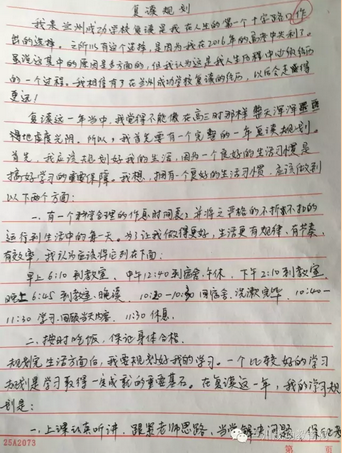 复读规划
我来兰州成功学校复读是我在人生的第一个十字路口作
出的选择。之所以有这个选择,是因为我在2016年的高考中失利了。
虽说这其中的原因是多方面的,但我认为这是我人生历程中必须经历
的一个过程。我相信有了在兰州成功学校复读的经历,以后会走得
更远!
复读这一年当中,我觉得不能像在高三时那样整天浑浑噩噩
地虚度光阴。所以,我首先要有一个完整的一年复读规划。
首先,我应该规划好我的生活,因为一个良好的生活习惯是
搞好学习的重要保障。我想,拥有一个良好的生活习惯,应该做到
以下两个方面:
一、有一个科学合理的作息时间表,并将之严格的不折不扣的
运行到生活中的每一天。为了让我做得更好,生活更有规律、有节奏、
有效率,我认为应该将它列在下面:
早上6:10到教室、中午12:40到宿舍午休、下午2:10到教室、
晚上6:45到教室、晚读、10:20-10:30回宿舍、洗漱、10:40-
11:30学习、回顾当天内容、11:30休息。
二、按时吃饭,保证身体合格。
规划完生活方面后,我要规划好我的学习。一个比较好的学习
规划是学习取得一定成就的重要基石。在复读这一年,我的学习规
划是:
一、上课认真听讲,跟紧老师思路,当堂解决问题,保
25A2073
第 页